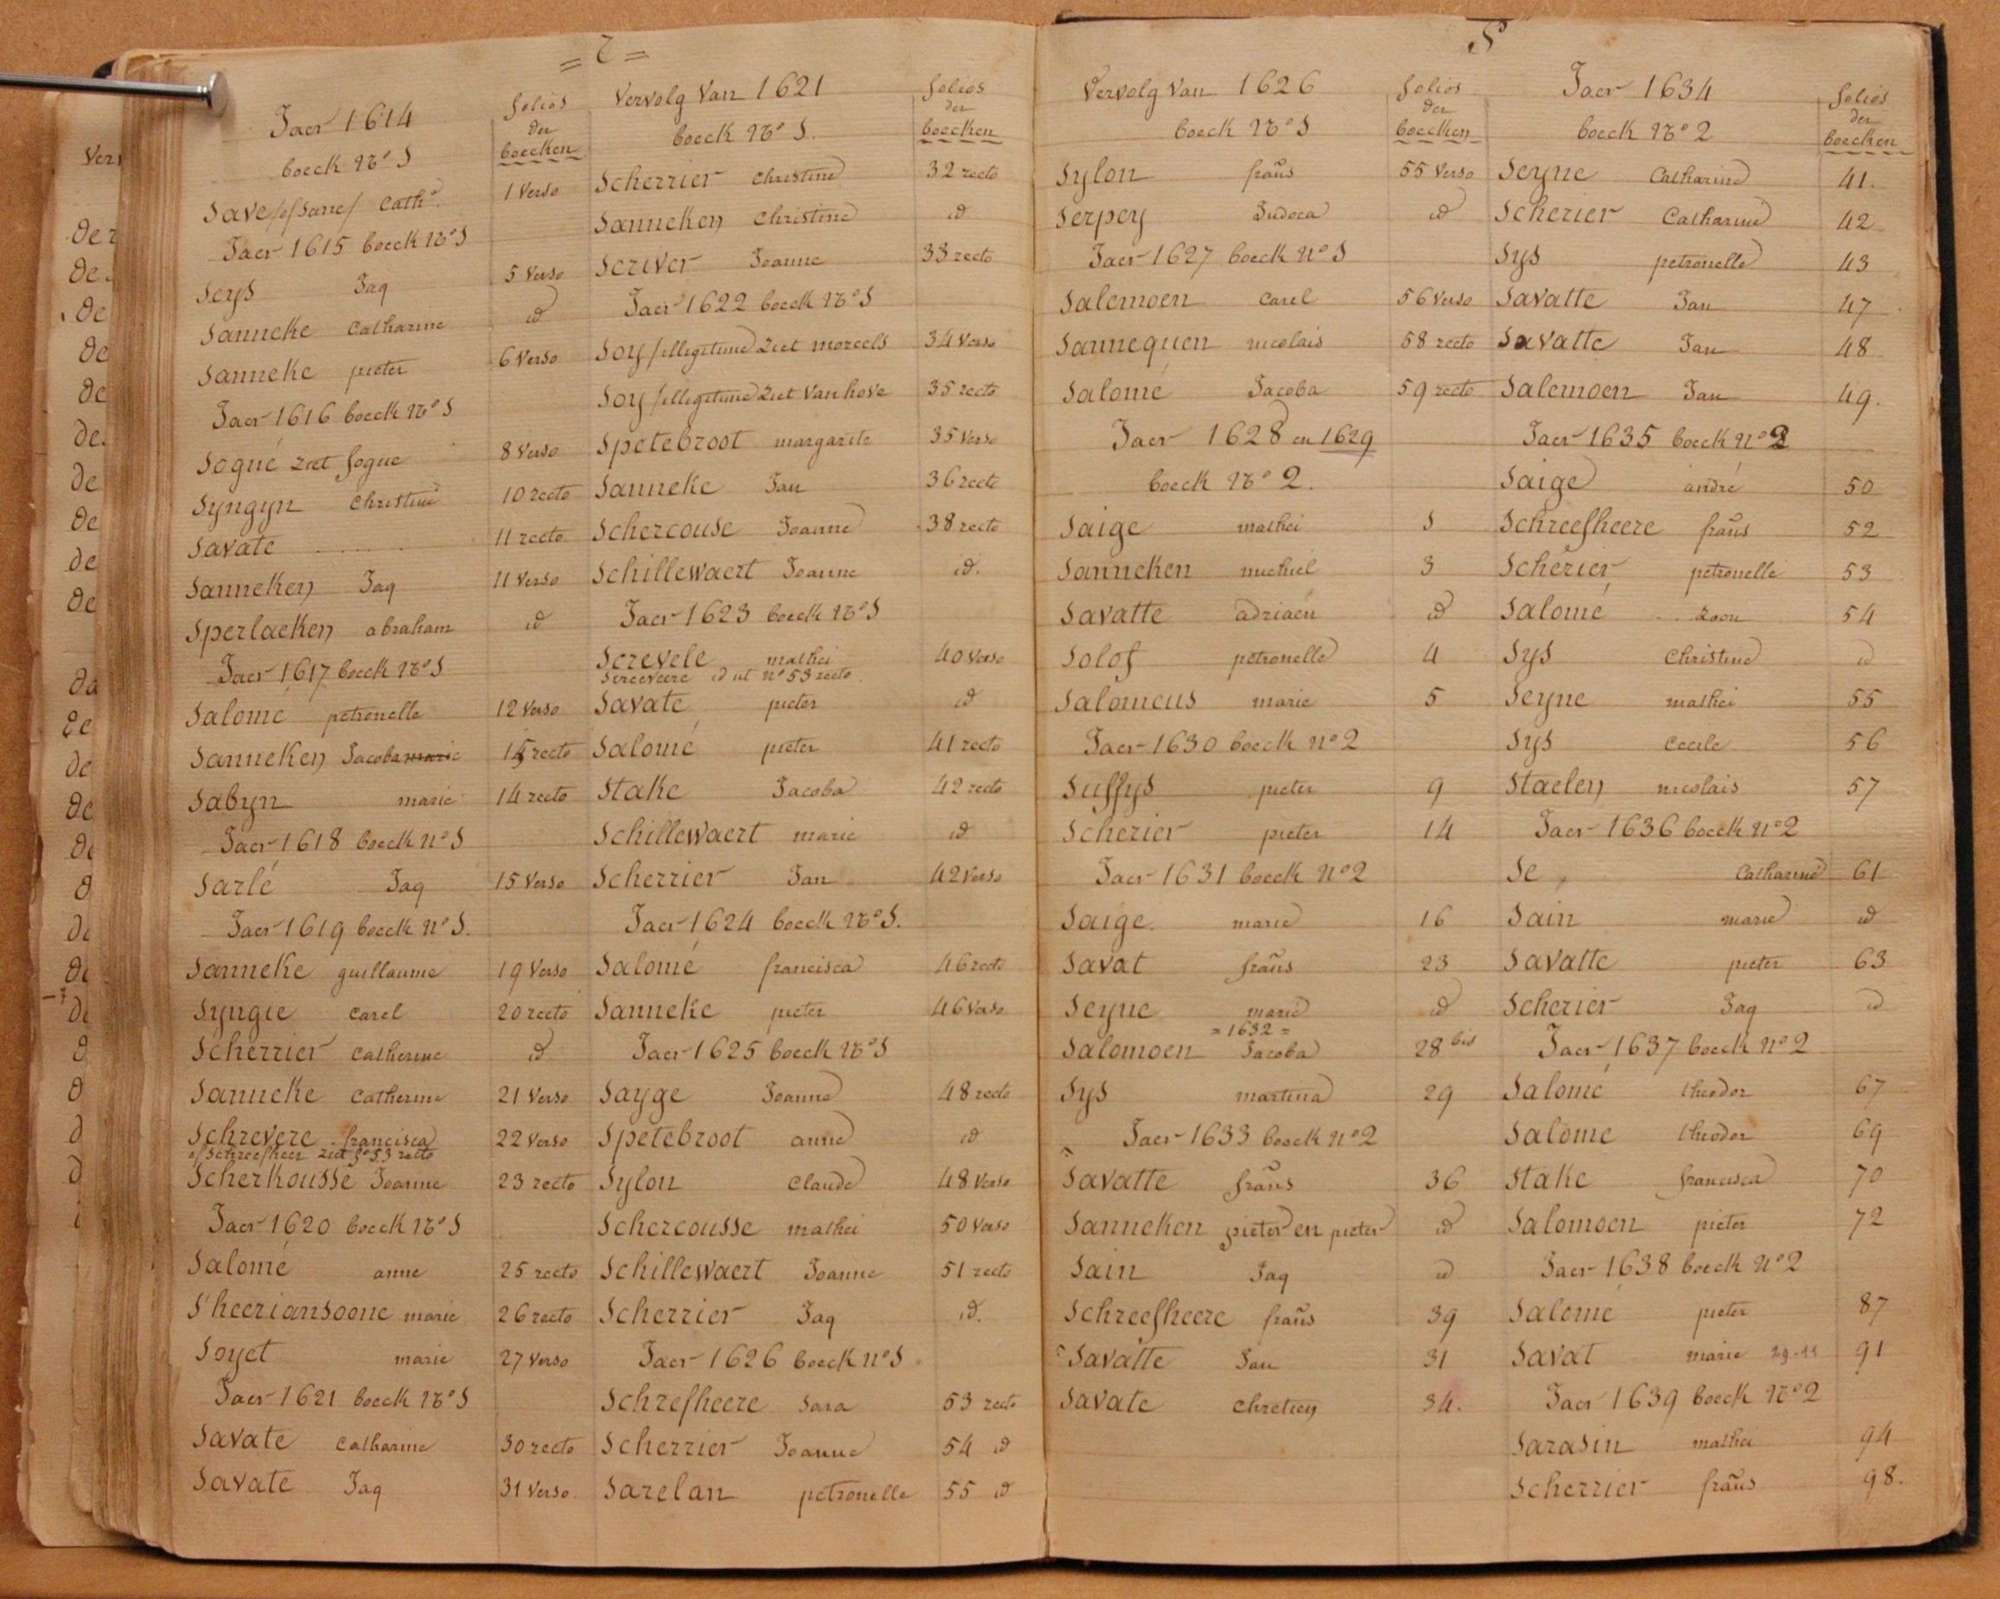 = 2 =
Jaer 1614
folios
der
boecken
boeck No 1
Save /of Sane/ Cath.
1 verso
Jaer 1615 boeck No 1
Seys Jaq 5 verso
Sanneke Catharine id
Sanneke pieter 6 verso
Jaer 1616 boeck No 1
Sogué ziet fogue 8 verso
Syngyn Christine 10 recto
Savate 11 recto
Sanneken Jaq 11 verso
Sperlaeken abraham id
Jaer 1617 boeck No 1
Salomé petronelle 12 verso
Sanneken Jacoba marie recto
Sabyn marie 14 recto
Jaer 1618 boeck No 1
Sarlé Jaq 15 verso
Jaer 1619 boeck No 1.
Sanneke guillaume 19 verso
Syngie Carel 20 recto
Scherrier Catherine id
Sanneke Catherine 21 verso
Schrevere francisca 22 verso
of Schreefheer ziet fo 53 recto
Scherkousse Joanne 23 recto
Jaer 1620 boeck No 1
Salomé anne 25 recto
S'heeriansoone marie 26 recto
Soyet marie 27 verso
Jaer 1621 boeck No 1
Savate Catharine 30 recto
Savate Jaq 31 verso
Vervolg Van 1621
folios
der
boecken
boeck No 1.
Scherrier Christine 32 recto
Sanneken Christine id
Scriver Joanne 33 recto
Jaer 1622 boeck No 1
Soy /illegitime ziet moreels 34 verso
Soy /illegitime ziet Vanhove 35 recto
Spetebroot margarite 35 verso
Sanneke Jan 36 recto
Schercouse Joanne 38 recto
Schillewaert Joanne id.
Jaer 1623 boeck No 1
Screvele mathei 40 verso
Screeveere id ut no 53 recto
Savate pieter id
Salomé pieter 41 recto
Stake Jacoba 42 recto
Schillewaert marie id
Scherrier Jan 42 verso
Jaer 1624 boeck No 1.
Salomé francisca 46 recto
Sanneke pieter 46 verso
Jaer 1625 boeck No 1
Sayge Joanne 48 recto
Spetebroot anne id
Sylon Claude 48 verso
Schercousse mathei 50 verso
Schillewaert Joanne 51 recto
Scherrier Jaq id.
Jaer 1626 boeck No 1
Schrefheere Sara 53 recto
Scherrier Joanne 54 id
Sarelan petronelle 55 id
S
Vervolg Van 1626
folios
der
boecken
boeck No 1
Sylon frans 55 verso
Serpey Judoca id
Jaer 1627 boeck No 1
Salemoen Carel 56 verso
Sannequen nicolais 58 recto
Salomé Jacoba 59 recto
Jaer 1628 en 1629
boeck No 2.
Saige mathei 1
Sanneken michiel 3
Savatte adriaen id
Solof petronelle 4
Salomeus marie 5
Jaer 1630 boeck No 2
Suffys pieter 9
Scherier pieter 14
Jaer 1631 boeck No 2
Saige marie 16
Savat frans 23
Seyne marie id
= 1632 =
Salomoen Jacoba 28 bis
Sys martina 29
Jaer 1633 boeck No 2
Savatte frans 36
Sanneken pieter en pieter id
Sain Jaq id
Schreefheere frans 39
Savatte Jan 31
Savate Chretien 34.
Jaer 1634
folios
der
boecken
boeck No 2
Seyne Catharine 41.
Scherier Catharine 42
Sys petronelle 43
Savatte Jan 47
Savatte Jan 48
Salemoen Jan 49.
Jaer 1635 boeck No 2
Saige andré 50
Schreefheere frans 52
Scherier petronelle 53
Salomé zoon 54
Sys Christine id
Seyne mathei 55
Sys Cecile 56
Staelen nicolais 57
Jaer 1636 boeck No 2
Se Catharine 61
Sain marie id
Savatte pieter 63
Scherier Jaq id
Jaer 1637 boeck No 2
Salomé theodor 67
Salome theodor 69
Stake francisca 70
Salomoen pieter 72
Jaer 1638 boeck No 2
Salomé pieter 87
Savat marie 91
Jaer 1639 boeck No 2
Sarasin mathei 94
Scherrier frans 98.